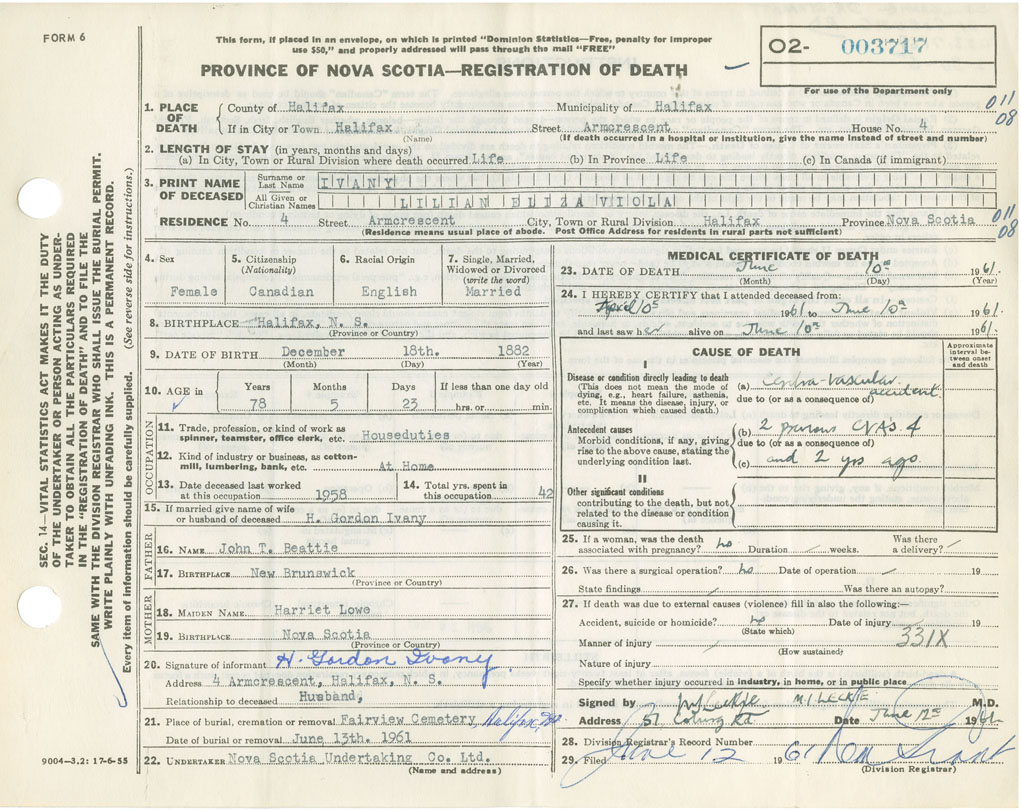 FORM 6
This form, if placed in an envelope, on which is printed "Dominion Statistics—Free, penalty for improper
use $50," and properly addressed will pass through the mail "FREE"
PROVINCE OF NOVA SCOTIA—REGISTRATION OF DEATH
O2- 003717
For use of the Department only
1. PLACE OF DEATH
County of Halifax Municipality of Halifax
If in City or Town Halifax Street Armcrescent House No. 4
(Name) (If death occurred in a hospital or institution, give the name instead of street and number)
011
08
2. LENGTH OF STAY (in years, months and days)
(a) In City, Town or Rural Division where death occurred Life (b) In Province Life (c) In Canada (if immigrant)
3. PRINT NAME OF DECEASED
Surname or Last Name IVANY
All Given or Christian Names LILIAN ELIZA VIOLA
RESIDENCE No. 4 Street Armcrescent City, Town or Rural Division Halifax Province Nova Scotia
(Residence means usual place of abode. Post Office Address for residents in rural parts not sufficient)
011
08
4. Sex Female
5. Citizenship (Nationality) Canadian
6. Racial Origin English
7. Single, Married, Widowed or Divorced (write the word) Married
8. BIRTHPLACE Halifax, N. S.
(Province or Country)
9. DATE OF BIRTH December 18th. 1882
(Month) (Day) (Year)
10. AGE in Years 78 Months 5 Days 23 If less than one day old hrs. or min.
OCCUPATION
11. Trade, profession, or kind of work as spinner, teamster, office clerk, etc. Houseduties
12. Kind of industry or business, as cotton-mill, lumbering, bank, etc. At Home
13. Date deceased last worked at this occupation 1958
14. Total yrs. spent in this occupation 42
15. If married give name of wife or husband of deceased H. Gordon Ivany
FATHER
16. NAME John T. Beattie
17. BIRTHPLACE New Brunswick
(Province or Country)
MOTHER
18. MAIDEN NAME Harriet Lowe
19. BIRTHPLACE Nova Scotia
(Province or Country)
20. Signature of informant H. Gordon Ivany.
Address 4 Armcrescent, Halifax, N. S.
Relationship to deceased Husband,
21. Place of burial, cremation or removal Fairview Cemetery, Halifax, N.S.
Date of burial or removal June 13th. 1961
22. UNDERTAKER Nova Scotia Undertaking Co. Ltd.
(Name and address)
MEDICAL CERTIFICATE OF DEATH
23. DATE OF DEATH June 10th 1961.
(Month) (Day) (Year)
24. I HEREBY CERTIFY that I attended deceased from:
April 10th 1961 to June 10th 1961.
and last saw her alive on June 10th 1961.
CAUSE OF DEATH
Approximate interval between onset and death
I
Disease or condition directly leading to death
(This does not mean the mode of dying, e.g., heart failure, asthenia, etc. It means the disease, injury, or complication which caused death.)
(a) Cerebra-vascular accident.
due to (or as a consequence of)
Antecedent causes
Morbid conditions, if any, giving rise to the above cause, stating the underlying condition last.
(b) 2 previous CVAS. 4
due to (or as a consequence of)
(c) and 2 yrs ago.
II
Other significant conditions
contributing to the death, but not related to the disease or condition causing it.
25. If a woman, was the death associated with pregnancy? No Duration weeks. Was there a delivery?
26. Was there a surgical operation? No Date of operation 19
State findings Was there an autopsy?
27. If death was due to external causes (violence) fill in also the following:—
Accident, suicide or homicide? No Date of injury 19
(State which)
Manner of injury 331X
(How sustained)
Nature of injury
Specify whether injury occurred in industry, in home, or in public place
Signed by M I LECKIE M.D.
Address 51 Coburg Rd. Date June 12th 1961.
28. Division Registrar's Record Number
29. Filed June 12 1961
(Division Registrar)
SEC. 14—VITAL STATISTICS ACT MAKES IT THE DUTY
OF THE UNDERTAKER OR PERSON ACTING AS UNDER-
TAKER TO OBTAIN ALL THE PARTICULARS REQUIRED
IN THE "REGISTRATION OF DEATH" AND TO FILE THE
SAME WITH THE DIVISION REGISTRAR WHO SHALL ISSUE THE BURIAL PERMIT.
WRITE PLAINLY WITH UNFADING INK. THIS IS A PERMANENT RECORD.
Every item of information should be carefully supplied. (See reverse side for instructions.)
9004—3.2: 17-6-55